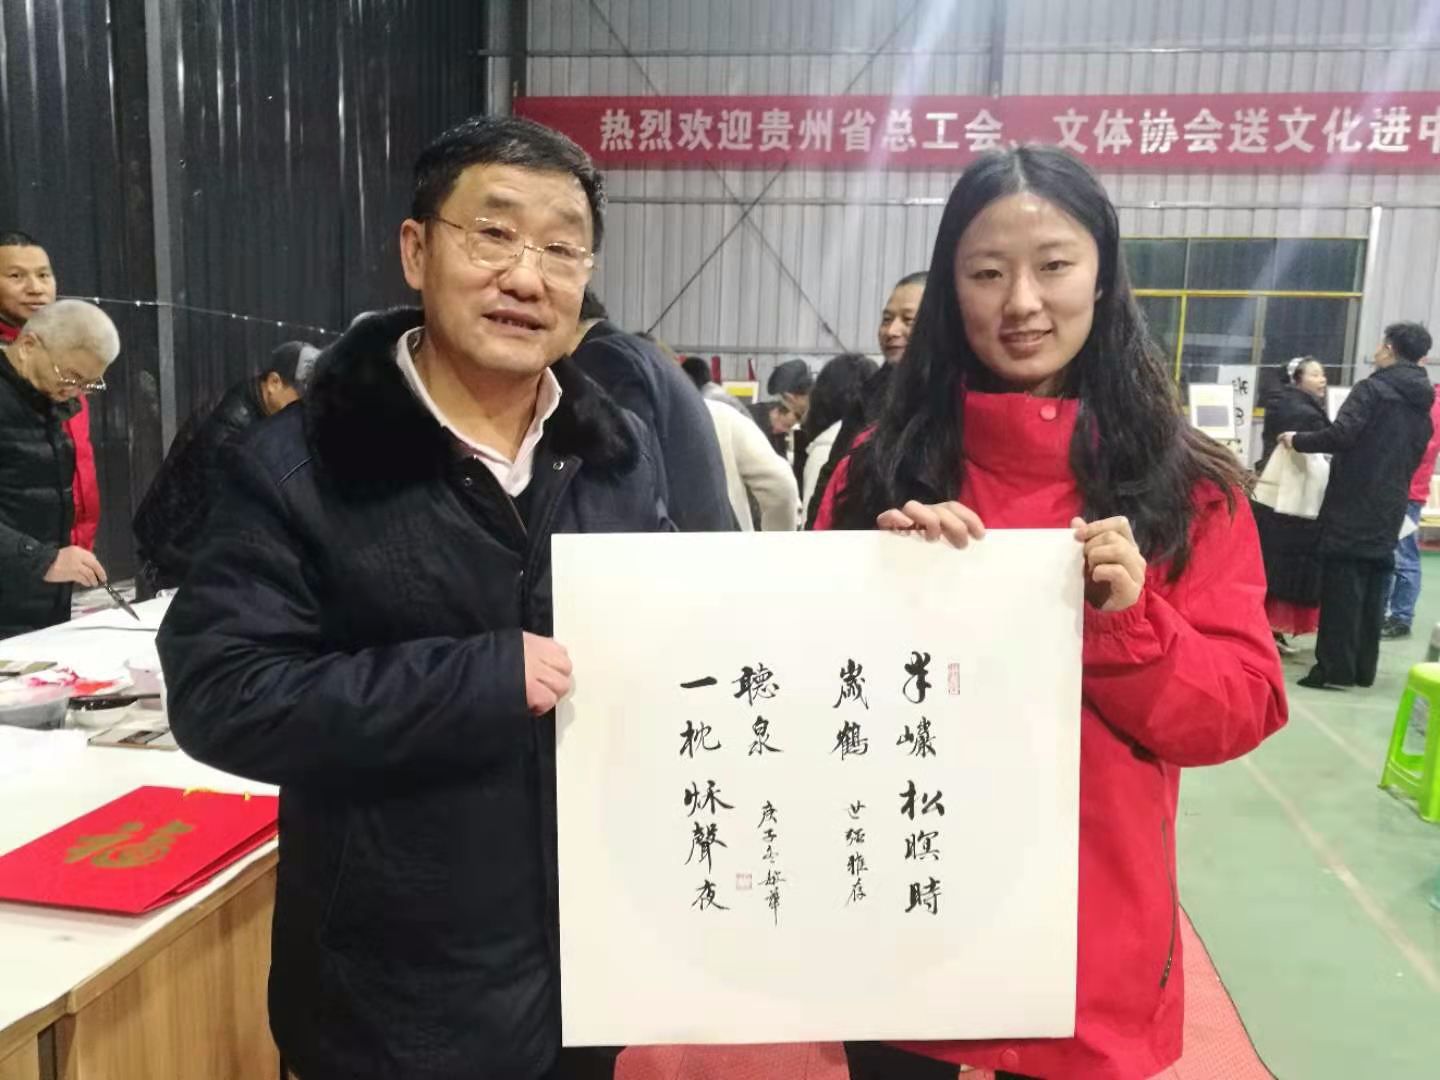 热烈欢迎贵州省总工会、文体协会送文化进中
半巖松暝時
藏鶴
世強雅存
一枕秌聲夜
聽泉
庚子冬敏華
福